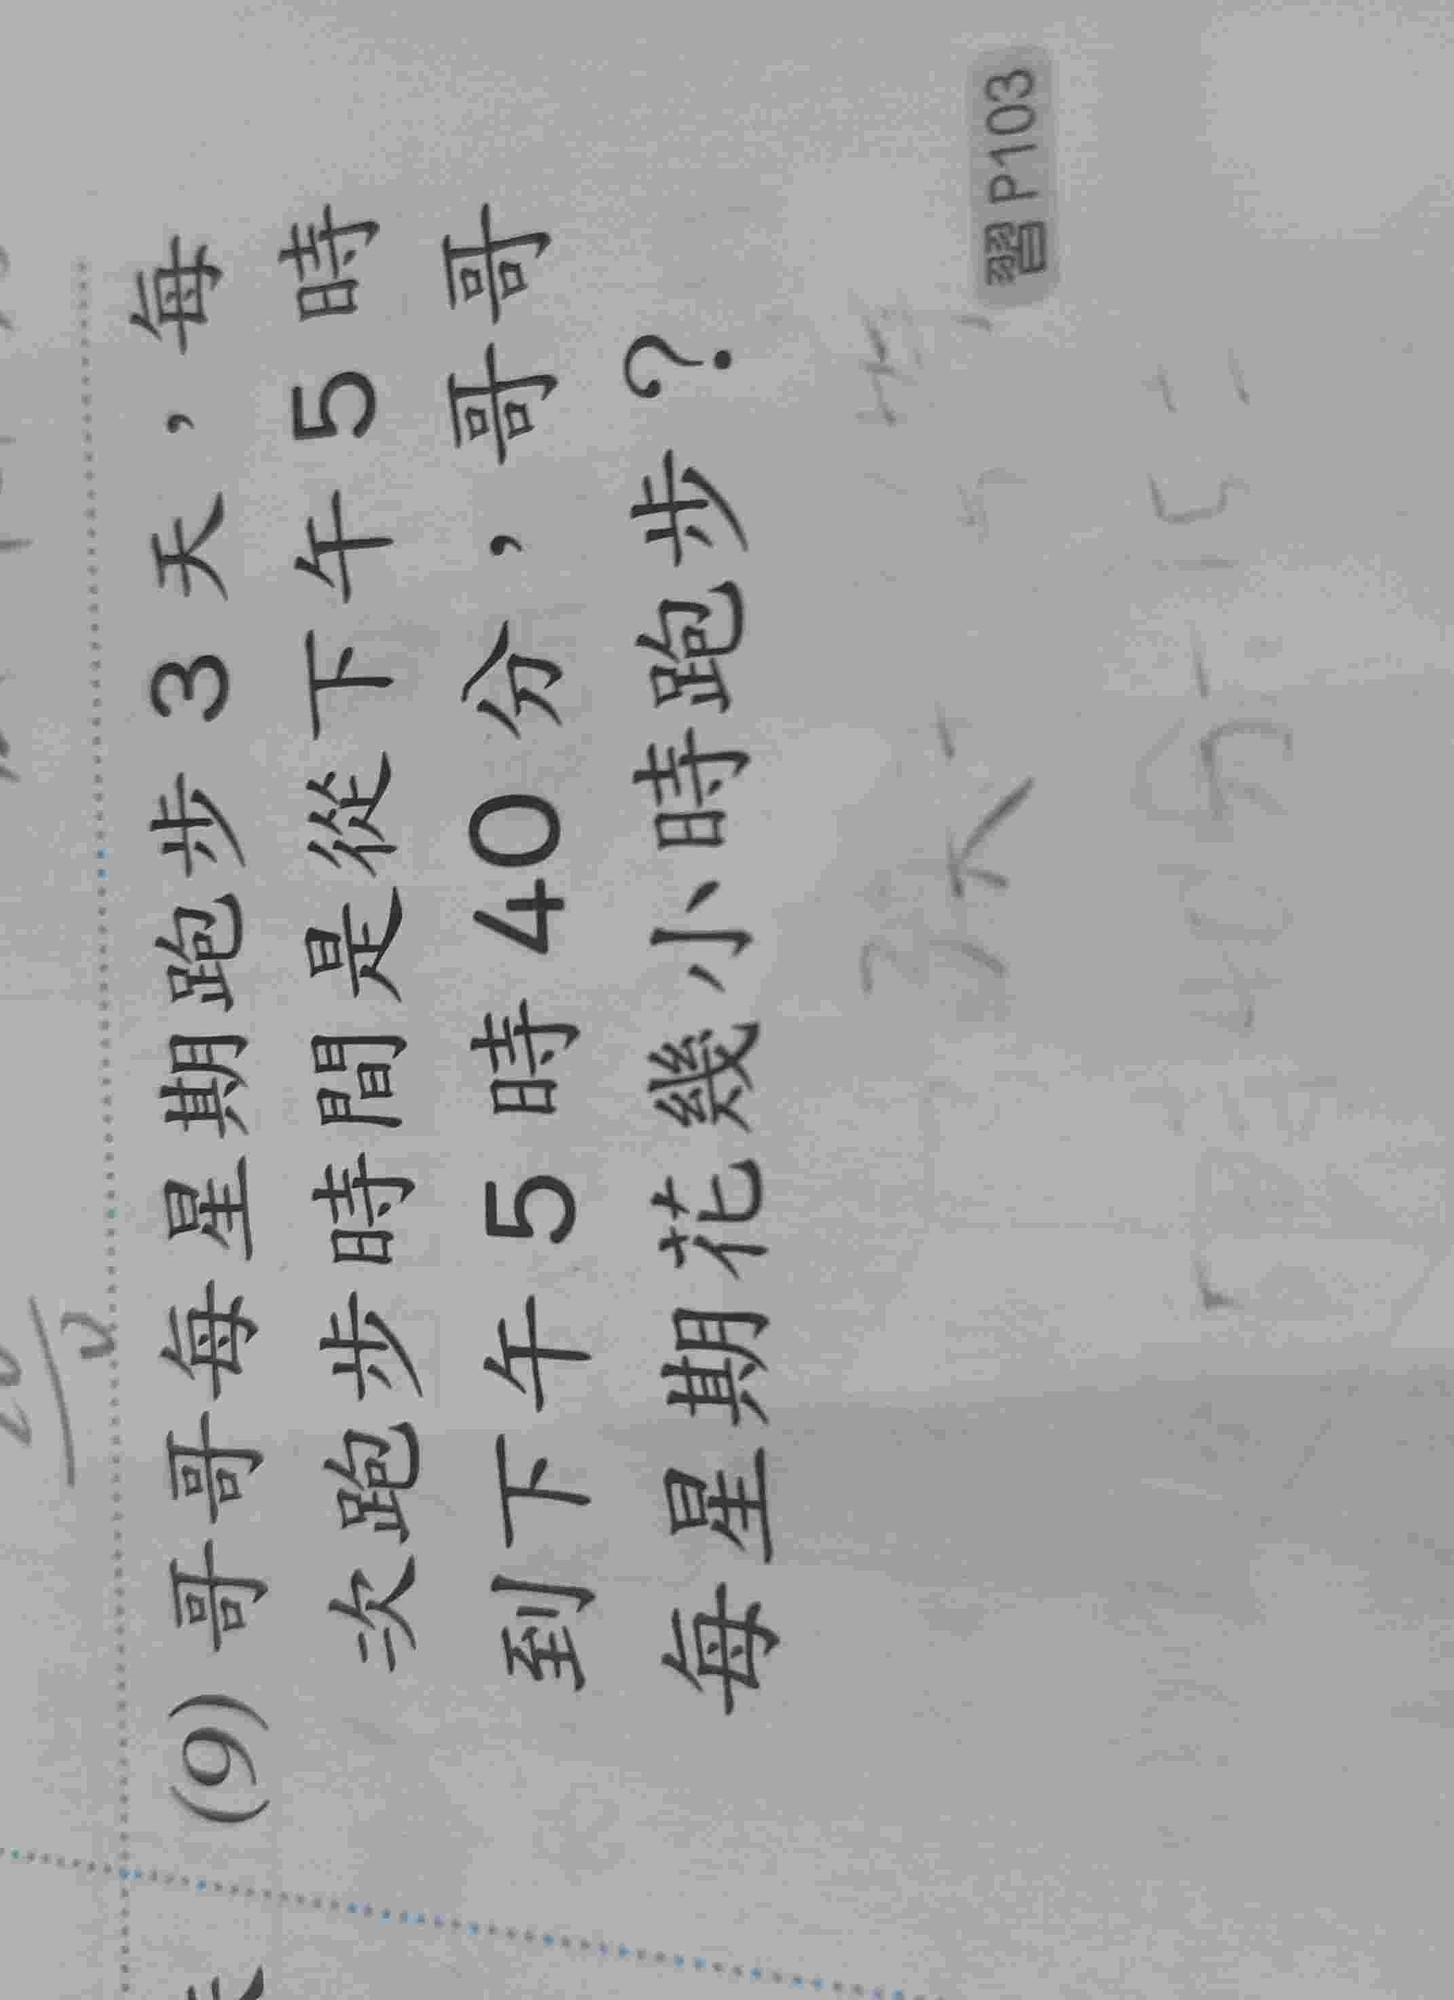 (9) 哥哥每星期跑步 3 天，每
次跑步時間是從下午 5 時
到下午 5 時 40 分，哥哥
每星期花幾小時跑步？
習 P103